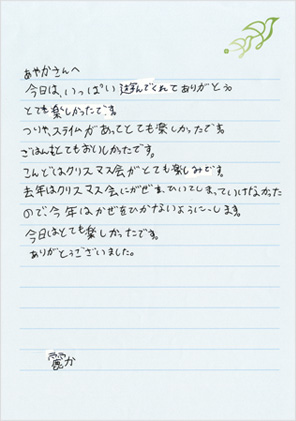 あやかさんへ
今日は、いっぱい遊んでくれてありがとう。
とても楽しかったです。
つりや、スライムがあってとても楽しかったです。
ごはんもとてもおいしかったです。
こんどはクリスマス会がとても楽しみです。
去年はクリスマス会にかぜを、ひいてしまっていけなかった
ので今年はかぜをひかないように、します。
今日はとても楽しかったです。
ありがとうございました。
麗か